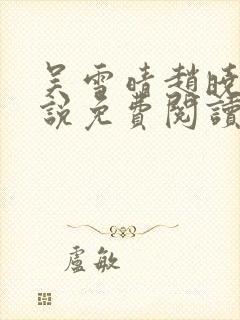 吴雪晴趙曉
說免費閱讀
盧敏